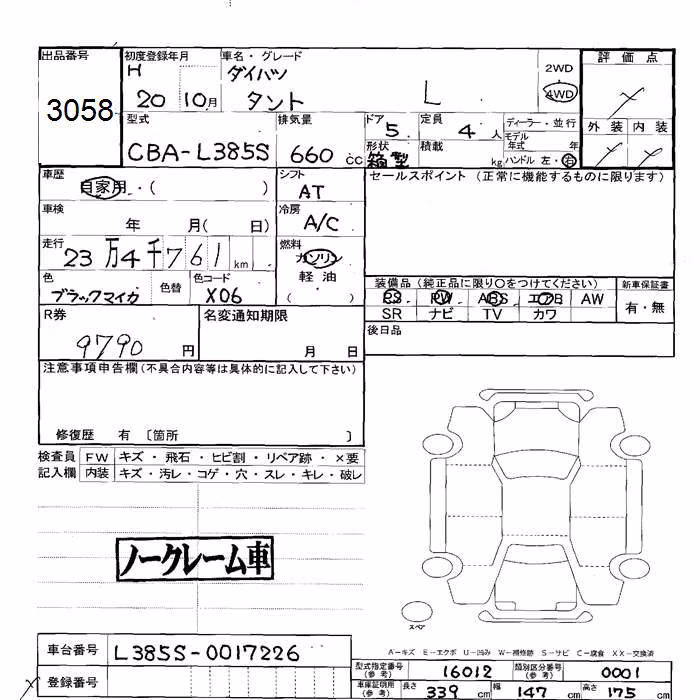 出品番号
3058
初度登録年月
H
20 10月
車名・グレード
ダイハツ
タント L
2WD
4WD
評価点
外装 内装
型式
CBA-L385S
排気量
660 cc
ドア
5
定員
4 人
ディーラー・並行
モデル
年式 年
形状
箱型
積載 kg
ハンドル 左・右
車歴
自家用・( )
シフト
AT
セールスポイント (正常に機能するものに限ります)
車検
年 月( 日)
冷房
A/C
走行
23万4千761km
燃料
ガソリン
軽油
( )
色
ブラックマイカ
色替
色コード
X06
装備品 (純正品に限り〇をつけてください)
PS PW ABS エアB AW
SR ナビ TV カワ
新車保証書
有・無
R券
9790 円
名変通知期限
月 日
後日品
注意事項申告欄 (不具合内容等は具体的に記入して下さい)
修復歴 有 〔箇所 〕
検査員 FW キズ・飛石・ヒビ割・リペア跡・×要
記入欄 内装 キズ・汚レ・コゲ・穴・スレ・キレ・破レ
ノークレーム車
スペア
A-キズ E-エクボ U-凹み W-補修跡 S-サビ C-腐食 XX-交換済
車台番号 L385S-0017226
登録番号
型式指定番号
(参考)
16012
類別区分番号
(参考)
0001
車庫証明用
(参考)
長さ 339 cm 幅 147 cm 高さ 175 cm